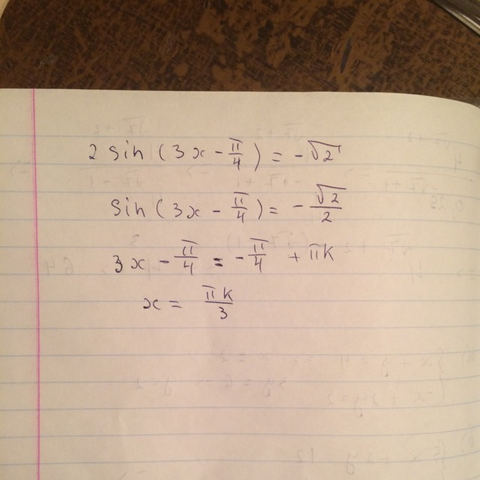 2 sin (3x - π/4) = -√2
sin (3x - π/4) = - √2/2
3x - π/4 = - π/4 + πk
x = πk/3